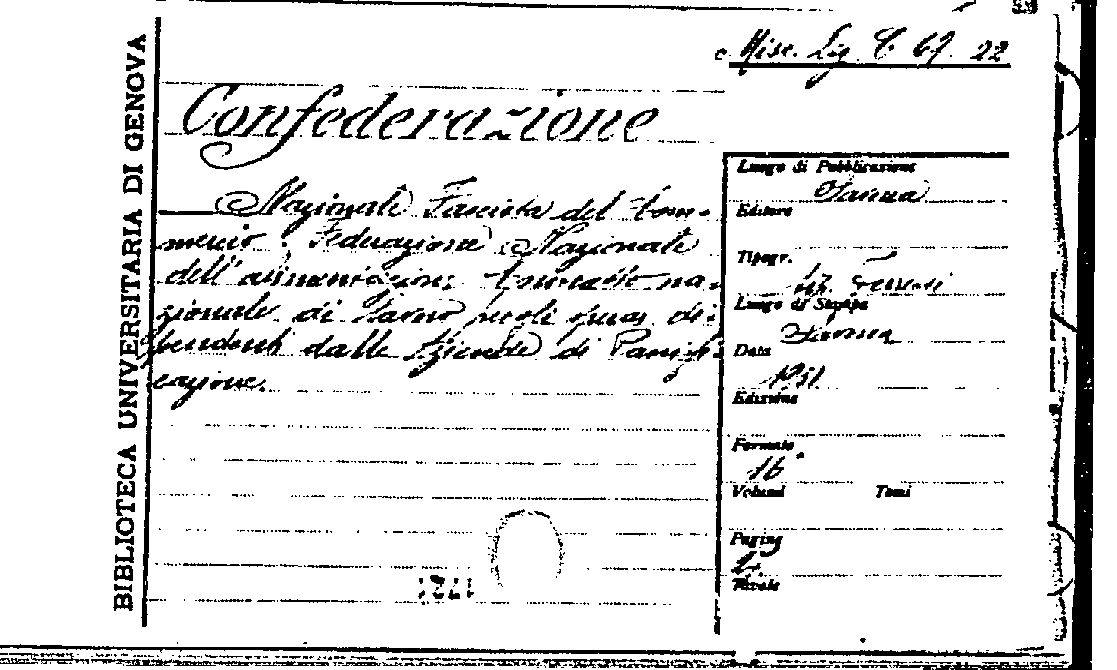 BIBLIOTECA UNIVERSITARIA DI GENOVA
Misc. Lig C 67. 22
Confederazione
Nazionale Fascista del Com-
mercio. Federazione Nazionale
dell'alimentazione Contratto na-
zionale di lavoro per gli operai di-
pendenti dalle Aziende di Panifi-
cazione.
Luogo di Pubblicazione
Editore
Tipogr.
Luogo di Stampa
Data
Edizione
Formato
16°
Volumi Tomi
Pagine
Tavole